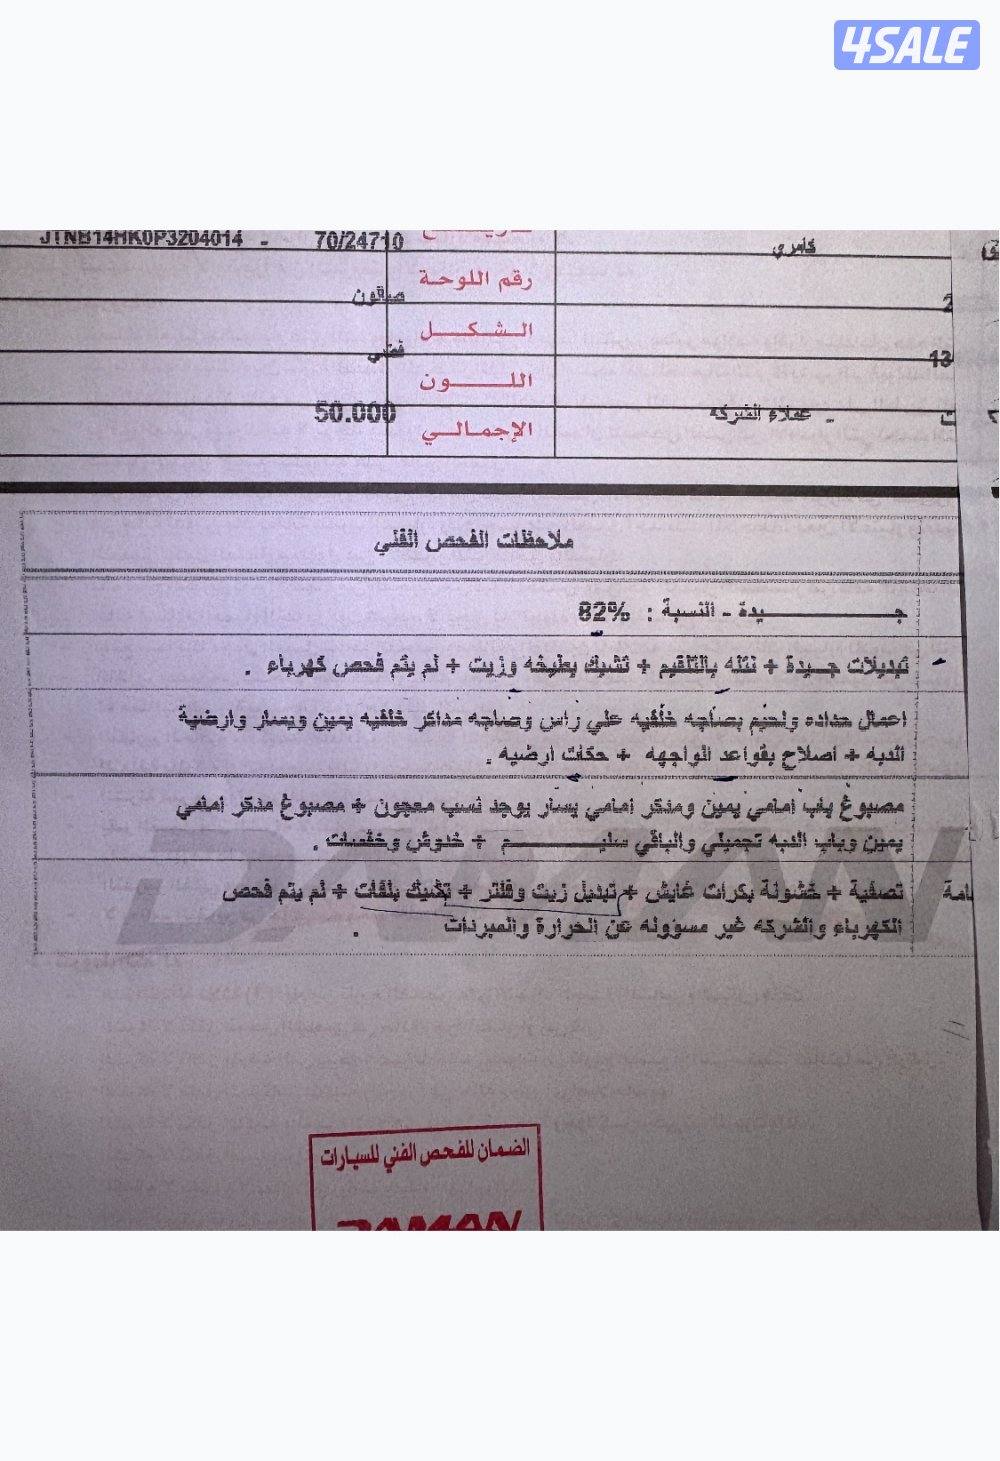 4SALE
JTNB14HK0P3204014 - 70/24710
كامري
رقم اللوحة
صالون
2
الشكل
فضي
13
اللون
50.000
الإجمالي
عملاء الشركة -
ملاحظات الفحص الفني
جـــــيدة - النسبة : 82%
تبديلات جــيدة + نتله بالتلقيم + تشيك بطيخه وزيت + لم يتم فحص كهرباء .
اعمال حداده ولحيم بصاجه خلفيه علي راس وصاجه مداكر خلفيه يمين ويسار وارضية
الدبه + اصلاح بقواعد الواجهه + حكات ارضيه .
مصبوغ باب امامي يمين ومدكر امامي يسار يوجد نسب معجون + مصبوغ مدكر امامي
يمين وباب الدبه تجميلي والباقي سليـــــم + خدوش وخفسات .
تصفية + خشونة بكرات غايش + تبديل زيت وفلتر + تكنيك بلقات + لم يتم فحص
الكهرباء والشركه غير مسؤوله عن الحرارة والمبردات .
DAMAN
الضمان للفحص الفني للسيارات
DAMAN